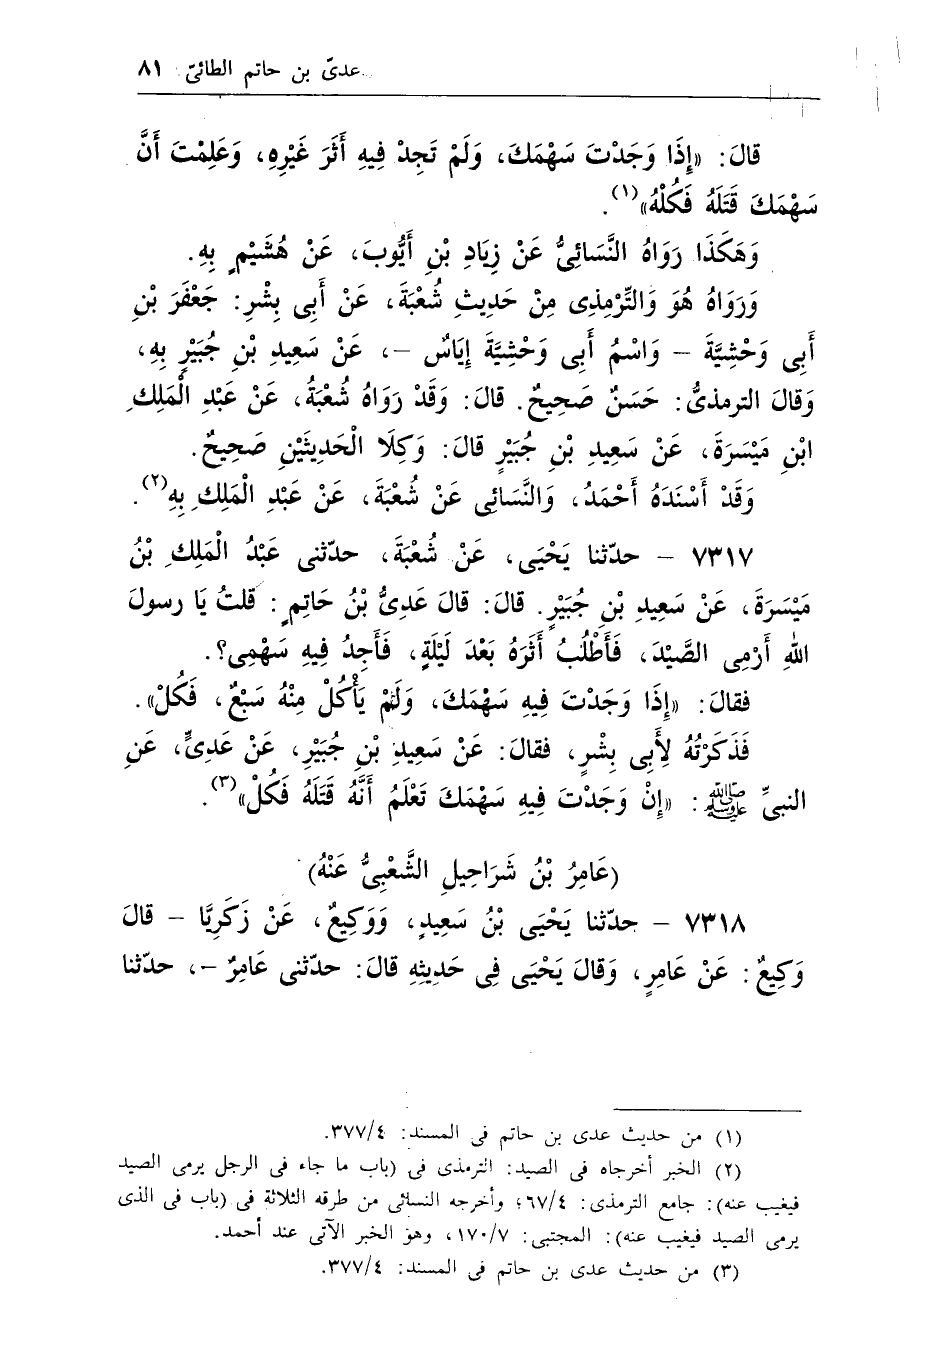 عدىّ بن حاتم الطائىّ ٨١
قالَ: «إِذَا وَجَدْتَ سَهْمَكَ، وَلَمْ تَجِدْ فِيهِ أَثَرَ غَيْرِهِ، وَعَلِمْتَ أَنَّ
سَهْمَكَ قَتَلَهُ فَكُلْهُ»(١).
وَهَكَذَا رَوَاهُ النَّسَائِىُّ عَنْ زِيَادِ بْنِ أَيُّوبَ، عَنْ هُشَيْمٍ بِهِ.
وَرَوَاهُ هُوَ وَالتِّرْمِذِى مِنْ حَدِيثِ شُعْبَةَ، عَنْ أَبِى بِشْرٍ: جَعْفَرَ بْنِ
أَبِى وَحْشِيَّةَ – وَاسْمُ أَبِى وَحْشِيَّةَ إِيَاسٌ –، عَنْ سَعِيدِ بْنِ جُبَيْرٍ بِهِ،
وَقالَ الترمذىُّ: حَسَنٌ صَحِيحٌ. قالَ: وَقَدْ رَوَاهُ شُعْبَةُ، عَنْ عَبْدِ الْمَلِكِ
ابْنِ مَيْسَرَةَ، عَنْ سَعِيدِ بْنِ جُبَيْرٍ قالَ: وَكِلَا الْحَدِيثَيْنِ صَحِيحٌ.
وَقَدْ أَسْنَدَهُ أَحْمَدُ، وَالنَّسَائِى عَنْ شُعْبَةَ، عَنْ عَبْدِ الْمَلِكِ بِهِ(٢).
٧٣١٧ – حدّثنا يَحْيَى، عَنْ شُعْبَةَ، حدّثنى عَبْدُ الْمَلِكِ بْنُ
مَيْسَرَةَ، عَنْ سَعِيدِ بْنِ جُبَيْرٍ. قالَ: قالَ عَدِىُّ بْنُ حَاتِمٍ: قلتُ يَا رسولَ
اللهِ أَرْمِى الصَّيْدَ، فَأَطْلُبُ أَثَرَهُ بَعْدَ لَيْلَةٍ، فَأَجِدُ فِيهِ سَهْمِى؟.
فقالَ: «إِذَا وَجَدْتَ فِيهِ سَهْمَكَ، وَلَمْ يَأْكُلْ مِنْهُ سَبُعٌ، فَكُلْ».
فَذَكَرْتُهُ لِأَبِى بِشْرٍ، فقالَ: عَنْ سَعِيدِ بْنِ جُبَيْرٍ، عَنْ عَدِىٍّ، عَنِ
النبىِّ ﷺ: «إِنْ وَجَدْتَ فِيهِ سَهْمَكَ تَعْلَمُ أَنَّهُ قَتَلَهُ فَكُلْ»(٣).
(عَامِرُ بْنُ شَرَاحِيلِ الشَّعْبِىُّ عَنْهُ)
٧٣١٨ – حدّثنا يَحْيَى بْنُ سَعِيدٍ، وَوَكِيعٌ، عَنْ زَكَرِيَّا – قالَ
وَكِيعٌ: عَنْ عَامِرٍ، وَقالَ يَحْيَى فِى حَدِيثِهِ قالَ: حدّثنى عَامِرٌ –، حدّثنا
(١) من حديث عدى بن حاتم فى المسند: ٣٧٧/٤.
(٢) الخبر أخرجاه فى الصيد: الترمذى فى (باب ما جاء فى الرجل يرمى الصيد
فيغيب عنه): جامع الترمذى: ٦٧/٤؛ وأخرجه النسائى من طرقه الثلاثة فى (باب فى الذى
يرمى الصيد فيغيب عنه): المجتبى: ١٧٠/٧، وهو الخبر الآتى عند أحمد.
(٣) من حديث عدى بن حاتم فى المسند: ٣٧٧/٤.